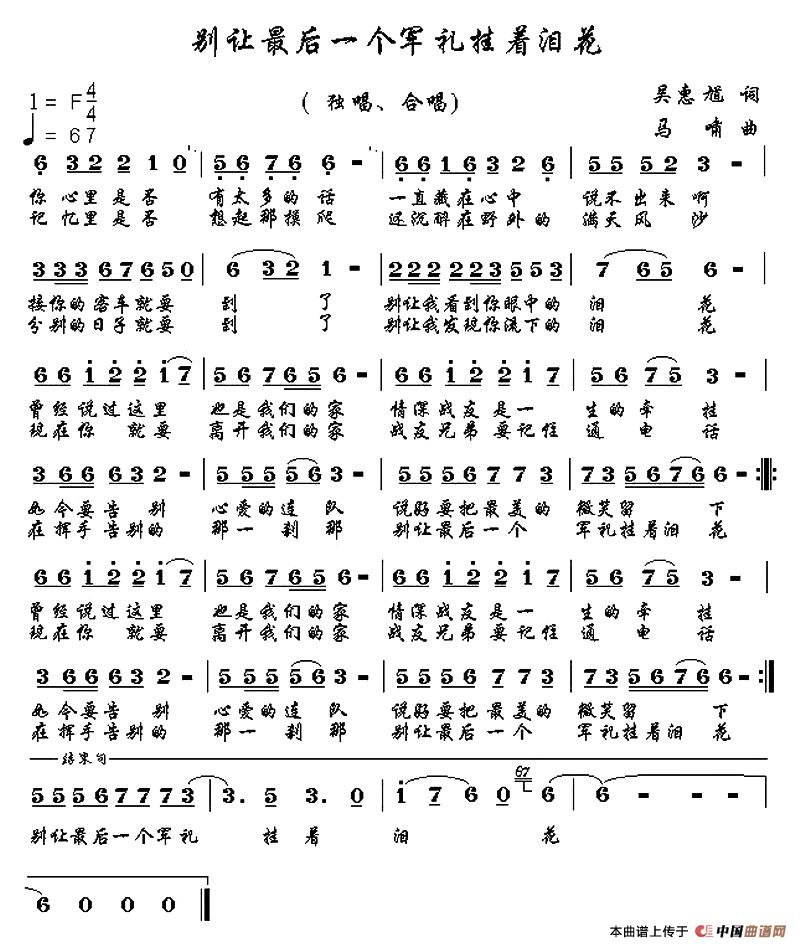 别让最后一个军礼挂着泪花
1=F 4/4
♩=67
(独唱、合唱)
吴惠尴 词
马啸 曲
6 3 2 2 1 0 | 5 6 7 6 6 - | 6 6 1 6 3 2 | 5 5 5 2 3 - |
你心里是否 有太多的话 一直藏在心中 说不出来啊
记忆里是否 想起那摸爬 还沉醉在野外的 满天风沙
3 3 3 6 7 6 5 0 | 6 3 2 1 - | 2 2 2 2 2 3 5 5 3 | 7 6 5 6 - |
接你的客车就要 到了 别让我看到你眼中的 泪花
分别的日子就要 到了 别让我发现你流下的 泪花
6 6 1 2 2 1 7 | 5 6 7 6 5 6 - | 6 6 1 2 2 1 2 | 5 6 7 5 3 - |
曾经说过这里 也是我们的家 情深战友是一 生的牵挂
现在你 就要 离开我们的家 战友兄弟要记住 通电话
3 6 6 6 3 2 - | 5 5 5 5 6 3 - | 5 5 5 6 7 7 3 | 7 3 5 6 7 6 6 - :||:
如今要告别 心爱的连队 说好要把最美的 微笑留下
在挥手告别的 那一刹那 别让最后一个 军礼挂着泪花
6 6 1 2 2 1 7 | 5 6 7 6 5 6 - | 6 6 1 2 2 1 2 | 5 6 7 5 3 - |
曾经说过这里 也是我们的家 情深战友是一 生的牵挂
现在你 就要 离开我们的家 战友兄弟要记住 通电话
3 6 6 6 3 2 - | 5 5 5 5 6 3 - | 5 5 5 6 7 7 3 | 7 3 5 6 7 6 6 - :||
如今要告别 心爱的连队 说好要把最美的 微笑留下
在挥手告别的 那一刹那 别让最后一个 军礼挂着泪花
结束句
5 5 5 6 7 7 7 3 | 3. 5 3. 0 | 1 7 6 0 67 6 | 6 - - - |
别让最后一个军礼 挂着 泪 花
6 0 0 0 ||
本曲谱上传于 中国曲谱网